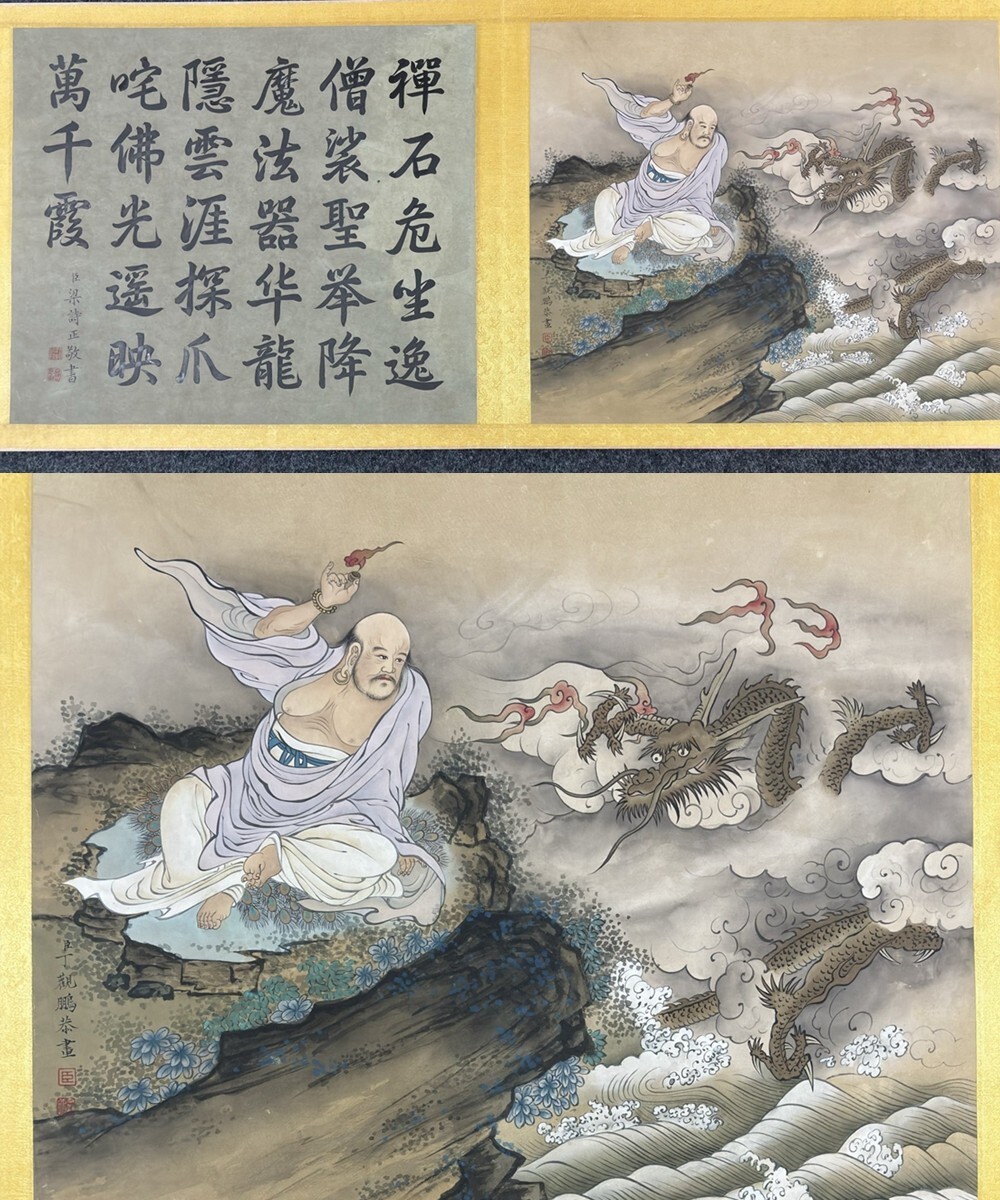 禪石危坐逸
僧裳聖举降
魔法器华龍
隱雲涯探爪
咤佛光遥映
萬千霞
臣梁詩正敬書
臣丁觀鵬恭畫
臣